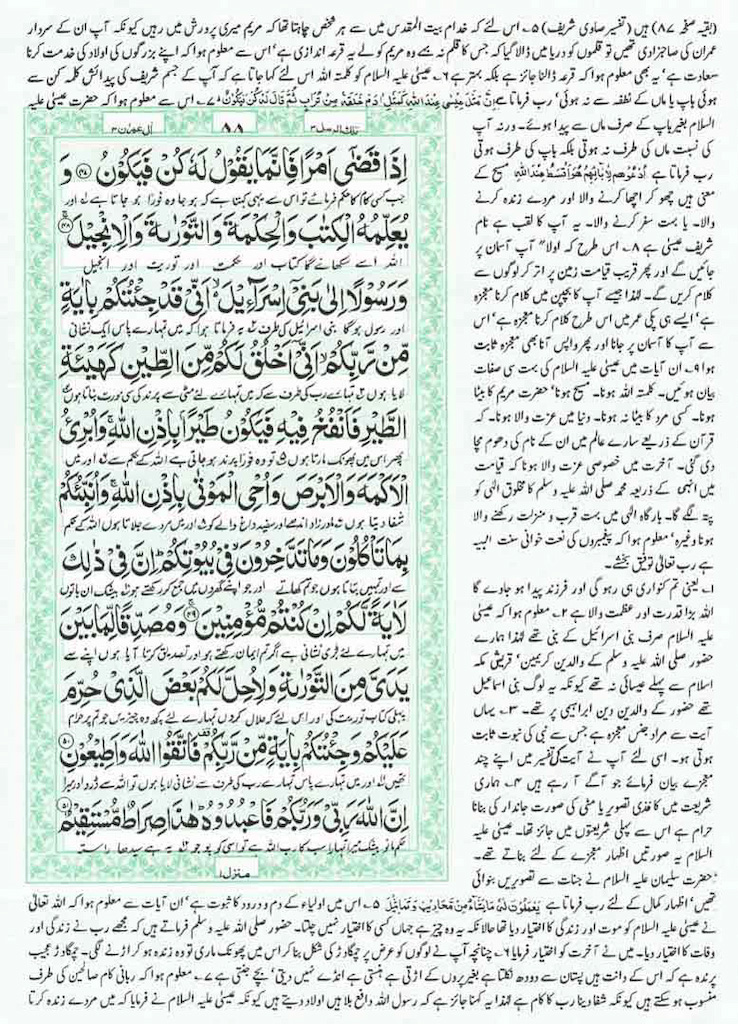 (بقیہ صفحہ ۸۷) ہیں (تفسیر صاوی شریف) ۵؎ اس لئے کہ خدام بیت المقدس میں سے ہر شخص چاہتا تھا کہ مریم میری پرورش میں رہیں کیونکہ آپ ان کے سردار
عمران کی صاحبزادی تھیں تو قلموں کو دریا میں ڈالا گیا کہ جس کا قلم نہ بہے وہ مریم کو لے یہ قرعہ اندازی ہے' اس سے معلوم ہوا کہ اپنے بزرگوں کی اولاد کی خدمت کرنا
سعادت ہے' یہ بھی معلوم ہوا کہ قرعہ ڈالنا جائز ہے بلکہ بہتر ہے ۶؎ عیسیٰ علیہ السلام کو کلمتہ اللہ اس لئے کہا جاتا ہے کہ آپ کے جسم شریف کی پیدائش کلمہ کن سے
ہوئی باپ یا ماں کے نطفہ سے نہ ہوئی' رب فرماتا ہے اِنَّ مَثَلَ عِیْسٰی عِنْدَ اللّٰہِ کَمَثَلِ اٰدَمَ خَلَقَہٗ مِنْ تُرَابٍ ثُمَّ قَالَ لَہٗ کُنْ فَیَکُوْنُ ۷؎ اس سے معلوم ہوا کہ حضرت عیسیٰ علیہ
السلام بغیر باپ کے صرف ماں سے پیدا ہوئے۔ ورنہ آپ
کی نسبت ماں کی طرف نہ ہوتی بلکہ باپ کی طرف ہوتی
رب فرماتا ہے اُدْعُوْھُمْ لِاٰبَآئِھِمْ ھُوَ اَقْسَطُ عِنْدَ اللّٰہِ مسیح کے
معنی ہیں چھو کر اچھا کرنے والا اور مردے زندہ کرنے
والا۔ یا بہت سفر کرنے والا۔ یہ آپ کا لقب ہے نام
شریف عیسیٰ ہے ۸؎ اس طرح کہ اولا" آپ آسمان پر
جائیں گے اور پھر قریب قیامت زمین پر اتر کر لوگوں سے
کلام کریں گے۔ لہٰذا جیسے آپ کا بچپن میں کلام کرنا معجزہ
ہے' ایسے ہی پکی عمر میں اس طرح کلام کرنا معجزہ ہے' اس
سے آپ کا آسمان پر جانا اور پھر واپس آنا بھی معجزہ ثابت
ہوا ۹؎ ان آیات میں عیسیٰ علیہ السلام کی بہت سی صفات
بیان ہوئیں۔ کلمتہ اللہ ہونا۔ مسیح ہونا' حضرت مریم کا بیٹا
ہونا۔ کسی مرد کا بیٹا نہ ہونا۔ دنیا میں عزت والا ہونا۔ کہ
قرآن کے ذریعے سارے عالم میں ان کے نام کی دھوم مچا
دی گئی۔ آخرت میں خصوصی عزت والا ہونا کہ قیامت
میں انہی کے ذریعہ محمد صلی اللہ علیہ وسلم کا مخلوق الٰہی کو
پتہ لگے گا۔ بارگاہ الٰہی میں بہت قرب و منزلت رکھنے والا
ہونا وغیرہ' معلوم ہوا کہ پیغمبروں کی نعت خوانی سنت الٰہیہ
ہے رب تعالیٰ توفیق بخشے۔
۱؎ یعنی تم کنواری ہی رہو گی اور فرزند پیدا ہو جاوے گا
اللہ بڑا قدرت اور عظمت والا ہے ۲؎ معلوم ہوا کہ عیسیٰ
علیہ السلام صرف بنی اسرائیل کے نبی تھے لہٰذا ہمارے
حضور صلی اللہ علیہ وسلم کے والدین کریمین' قریشی مکہ
اسلام سے پہلے عیسائی نہ تھے کیونکہ یہ لوگ بنی اسماعیل
تھے حضور کے والدین دین ابراہیمی پر تھے۔ ۳؎ یہاں
آیت سے مراد جنس معجزہ ہے جس سے نبی کی نبوت ثابت
ہوتی ہو۔ اسی لئے آپ نے آیت کی تفسیر میں اپنے چند
معجزے بیان فرمائے جو آگے آ رہے ہیں ۴؎ ہماری
شریعت میں کاغذی تصویر یا مٹی کی صورت جاندار کی بنانا
حرام ہے اس سے پہلی شریعتوں میں جائز تھا۔ عیسیٰ علیہ
السلام یہ صورتیں اظہار معجزے کے لئے بناتے تھے۔
'حضرت سلیمان علیہ السلام نے جنات سے تصویریں بنوائی
تلک الرسل ۳ ۸۸ اٰل عمرٰن ۳
اِذَا قَضٰۤی اَمْرًا فَاِنَّمَا یَقُوْلُ لَهٗ كُنْ فَیَكُوْنُ ﴿۴۷﴾ وَ
جب کسی کام کا حکم فرمائے تو اس سے یہی کہتا ہے کہ ہو جا وہ فوراً ہو جاتا ہے ۱؎ اور
یُعَلِّمُهُ الْكِتٰبَ وَالْحِكْمَةَ وَالتَّوْرٰىةَ وَالْاِنْجِیْلَ ﴿۴۸﴾
اللہ اسے سکھائے گا کتاب اور حکمت اور توریت اور انجیل
وَرَسُوْلًا اِلٰی بَنِیْۤ اِسْرَآءِیْلَ اَنِّیْ قَدْ جِئْتُكُمْ بِاٰیَةٍ
اور رسول ہوگا بنی اسرائیل کی طرف ۲؎ یہ فرماتا ہوا کہ میں تمہارے پاس ایک نشانی
مِّنْ رَّبِّكُمْ اَنِّیْۤ اَخْلُقُ لَكُمْ مِّنَ الطِّیْنِ كَهَیْـَٔةِ
لایا ہوں ۳؎ تمہارے رب کی طرف سے کہ میں تمہارے لئے مٹی سے پرند کی سی مورت بناتا ہوں ۴؎
الطَّیْرِ فَاَنْفُخُ فِیْهِ فَیَكُوْنُ طَیْرًۢا بِاِذْنِ اللّٰهِ وَاُبْرِئُ
پھر اس میں پھونک مارتا ہوں ۵؎ تو وہ فوراً پرند ہو جاتی ہے اللہ کے حکم سے ۶؎ اور میں
الْاَكْمَهَ وَالْاَبْرَصَ وَاُحْیِ الْمَوْتٰی بِاِذْنِ اللّٰهِ وَاُنَبِّئُكُمْ
شفا دیتا ہوں ۷؎ مادر زاد اندھے اور سفید داغ والے کو اور میں مردے جلاتا ہوں اللہ کے حکم
بِمَا تَاْكُلُوْنَ وَمَا تَدَّخِرُوْنَ فِیْ بُیُوْتِكُمْ اِنَّ فِیْ ذٰلِكَ
سے اور تمہیں بتاتا ہوں جو تم کھاتے اور جو اپنے گھروں میں جمع کر رکھتے ہو بیشک ان باتوں
لَاٰیَةً لَّكُمْ اِنْ كُنْتُمْ مُّؤْمِنِیْنَ ﴿۴۹﴾ وَمُصَدِّقًا لِّمَا بَیْنَ
میں تمہارے لئے بڑی نشانی ہے اگر تم ایمان رکھتے ہو اور تصدیق کرتا آیا ہوں اپنے سے
یَدَیَّ مِنَ التَّوْرٰىةِ وَلِاُحِلَّ لَكُمْ بَعْضَ الَّذِیْ حُرِّمَ
پہلی کتاب توریت کی اور اس لئے کہ حلال کروں تمہارے لئے کچھ وہ چیزیں جو تم پر حرام
عَلَیْكُمْ وَجِئْتُكُمْ بِاٰیَةٍ مِّنْ رَّبِّكُمْ فَاتَّقُوا اللّٰهَ وَاَطِیْعُوْنِ ﴿۵۰﴾
تھیں اور میں تمہارے پاس تمہارے رب کی طرف سے نشانی لایا ہوں تو اللہ سے ڈرو اور میرا
اِنَّ اللّٰهَ رَبِّیْ وَرَبُّكُمْ فَاعْبُدُوْهُ هٰذَا صِرَاطٌ مُّسْتَقِیْمٌ ﴿۵۱﴾
حکم مانو بیشک میرا تمہارا سب کا رب اللہ ہے تو اسی کو پوجو یہ ہے سیدھا راستہ
منزل۱
تھیں' اظہار کمال کے لئے رب فرماتا ہے یَعْمَلُوْنَ لَہٗ مَا یَشَآءُ مِنْ مَّحَارِیْبَ وَتَمَاثِیْلَ ۵؎ اس میں اولیاء کے دم و درود کا ثبوت ہے' ان آیات سے معلوم ہوا کہ اللہ تعالیٰ
نے عیسیٰ علیہ السلام کو موت اور زندگی کا اختیار دیا تھا حالانکہ یہ وہ چیز ہے جہاں کسی کا اختیار نہیں چلتا۔ حضور صلی اللہ علیہ وسلم نے فرماتے ہیں کہ مجھے رب نے زندگی اور
وفات کا اختیار دیا۔ میں نے آخرت کو اختیار فرمایا ۶؎ چنانچہ آپ نے لوگوں کو عرض پر چمگاڈر کی شکل بنا کر اس میں پھونک ماری تو وہ زندہ ہو کر اڑنے لگی۔ چمگاڈر عجیب
پرندہ ہے کہ اس کے دانت ہیں پستان سے دودھ نکلتا ہے بغیر پروں کے اڑتی ہے ہنستی ہے انڈے نہیں دیتی' بچے جنتی ہے ۷؎ معلوم ہوا کہ ربانی کام صالحین کی طرف
منسوب ہو سکتے ہیں کیونکہ شفا دینا رب کا کام ہے لہٰذا یہ کہنا جائز ہے کہ رسول اللہ دافع بلا ہیں اولاد دیتے ہیں کیونکہ عیسیٰ علیہ السلام نے فرمایا کہ میں مردے زندہ کرتا